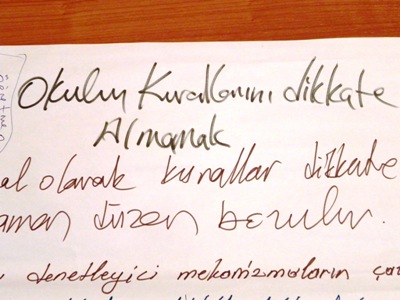 Okulun Kurallarını dikkate
Almamak
al olarak kurallar dikkate
aman düzen bozulur.
denetleyici mekanizmaların ça